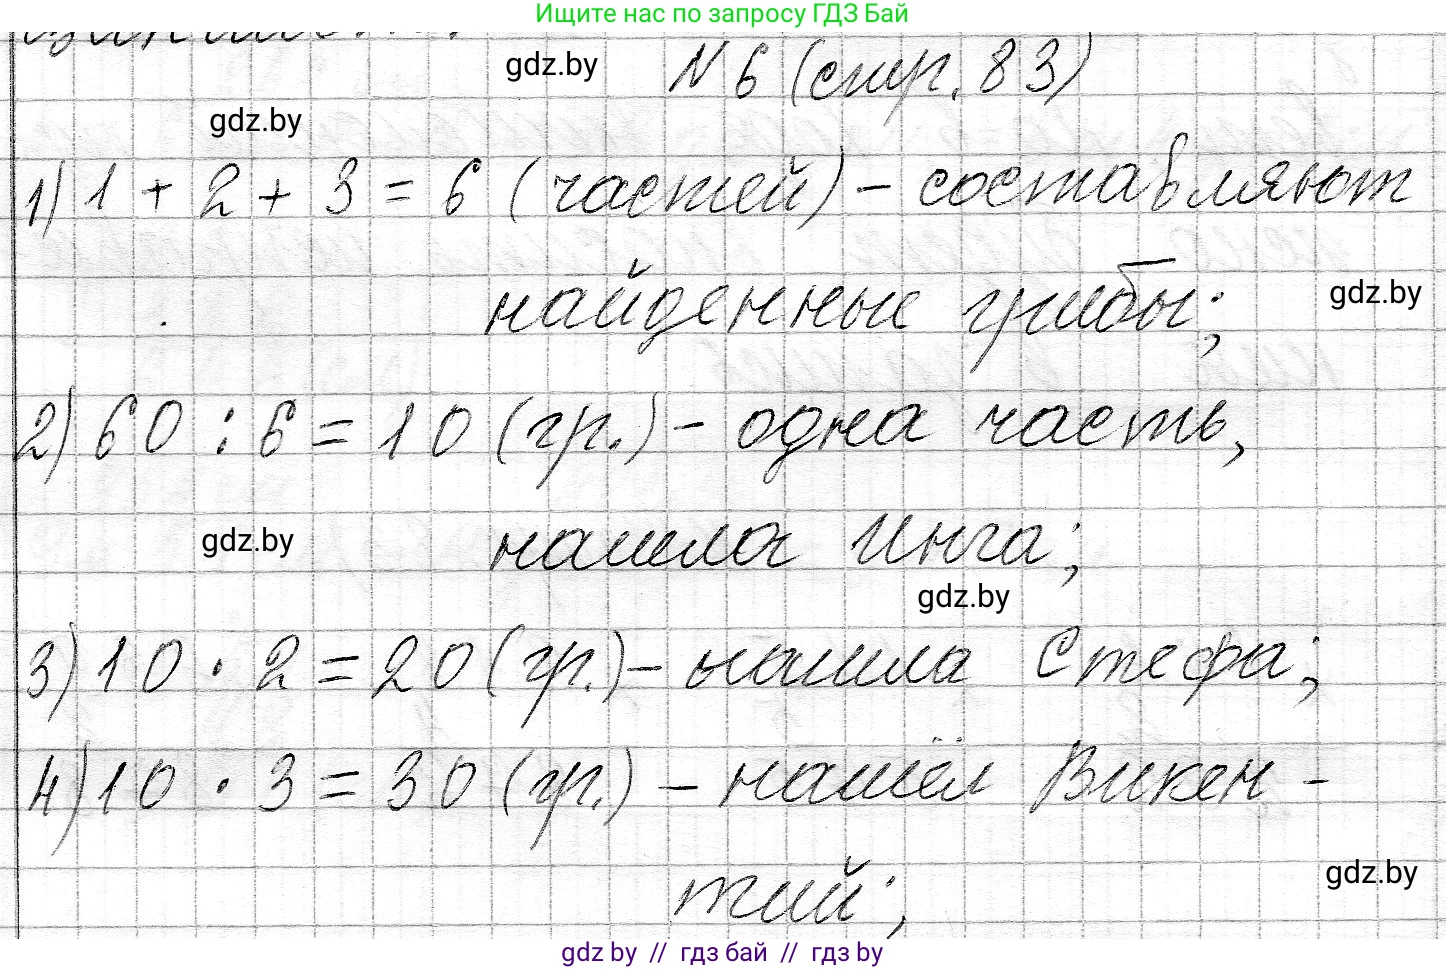 Ищите нас по запросу ГДЗ Бай
gdz.by
N 6 (стр. 83)
gdz.by
1) 1 + 2 + 3 = 6 (частей) - составляют
найденные грибы;
gdz.by
2) 60 : 6 = 10 (гр.) - одна часть,
нашла Инга;
gdz.by
gdz.by
3) 10 · 2 = 20 (гр.) - нашла Стефа;
4) 10 · 3 = 30 (гр.) - нашёл Викен -
тий;
gdz.by
gdz by // гдз бай // гдз by